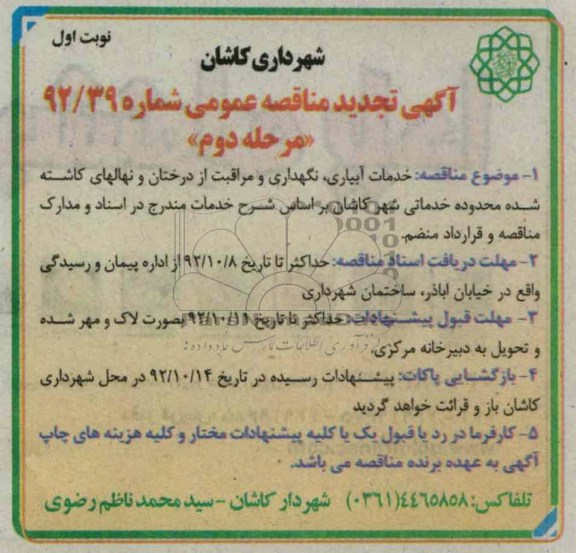 نوبت اول
شهرداری کاشان
آگهی تجدید مناقصه عمومی شماره ۹۲/۳۹
«مرحله دوم»
۱- موضوع مناقصه: خدمات آبیاری، نگهداری و مراقبت از درختان و نهالهای کاشته
شده محدوده خدماتی شهر کاشان بر اساس شرح خدمات مندرج در اسناد و مدارک
مناقصه و قرارداد منضم.
۲- مهلت دریافت اسناد مناقصه: حداکثر تا تاریخ ۹۲/۱۰/۸ از اداره پیمان و رسیدگی
واقع در خیابان اباذر، ساختمان شهرداری
۳- مهلت قبول پیشنهادات: حداکثر تا تاریخ ۹۲/۱۰/۱۱ بصورت لاک و مهر شده
و تحویل به دبیرخانه مرکزی.
۴- بازگشایی پاکات: پیشنهادات رسیده در تاریخ ۹۲/۱۰/۱۴ در محل شهرداری
کاشان باز و قرائت خواهد گردید
۵- کارفرما در رد یا قبول یک یا کلیه پیشنهادات مختار و کلیه هزینه های چاپ
آگهی به عهده برنده مناقصه می باشد.
تلفاکس: ۴۴۶۵۸۵۸(۰۳۶۱) شهردار کاشان - سید محمد ناظم رضوی